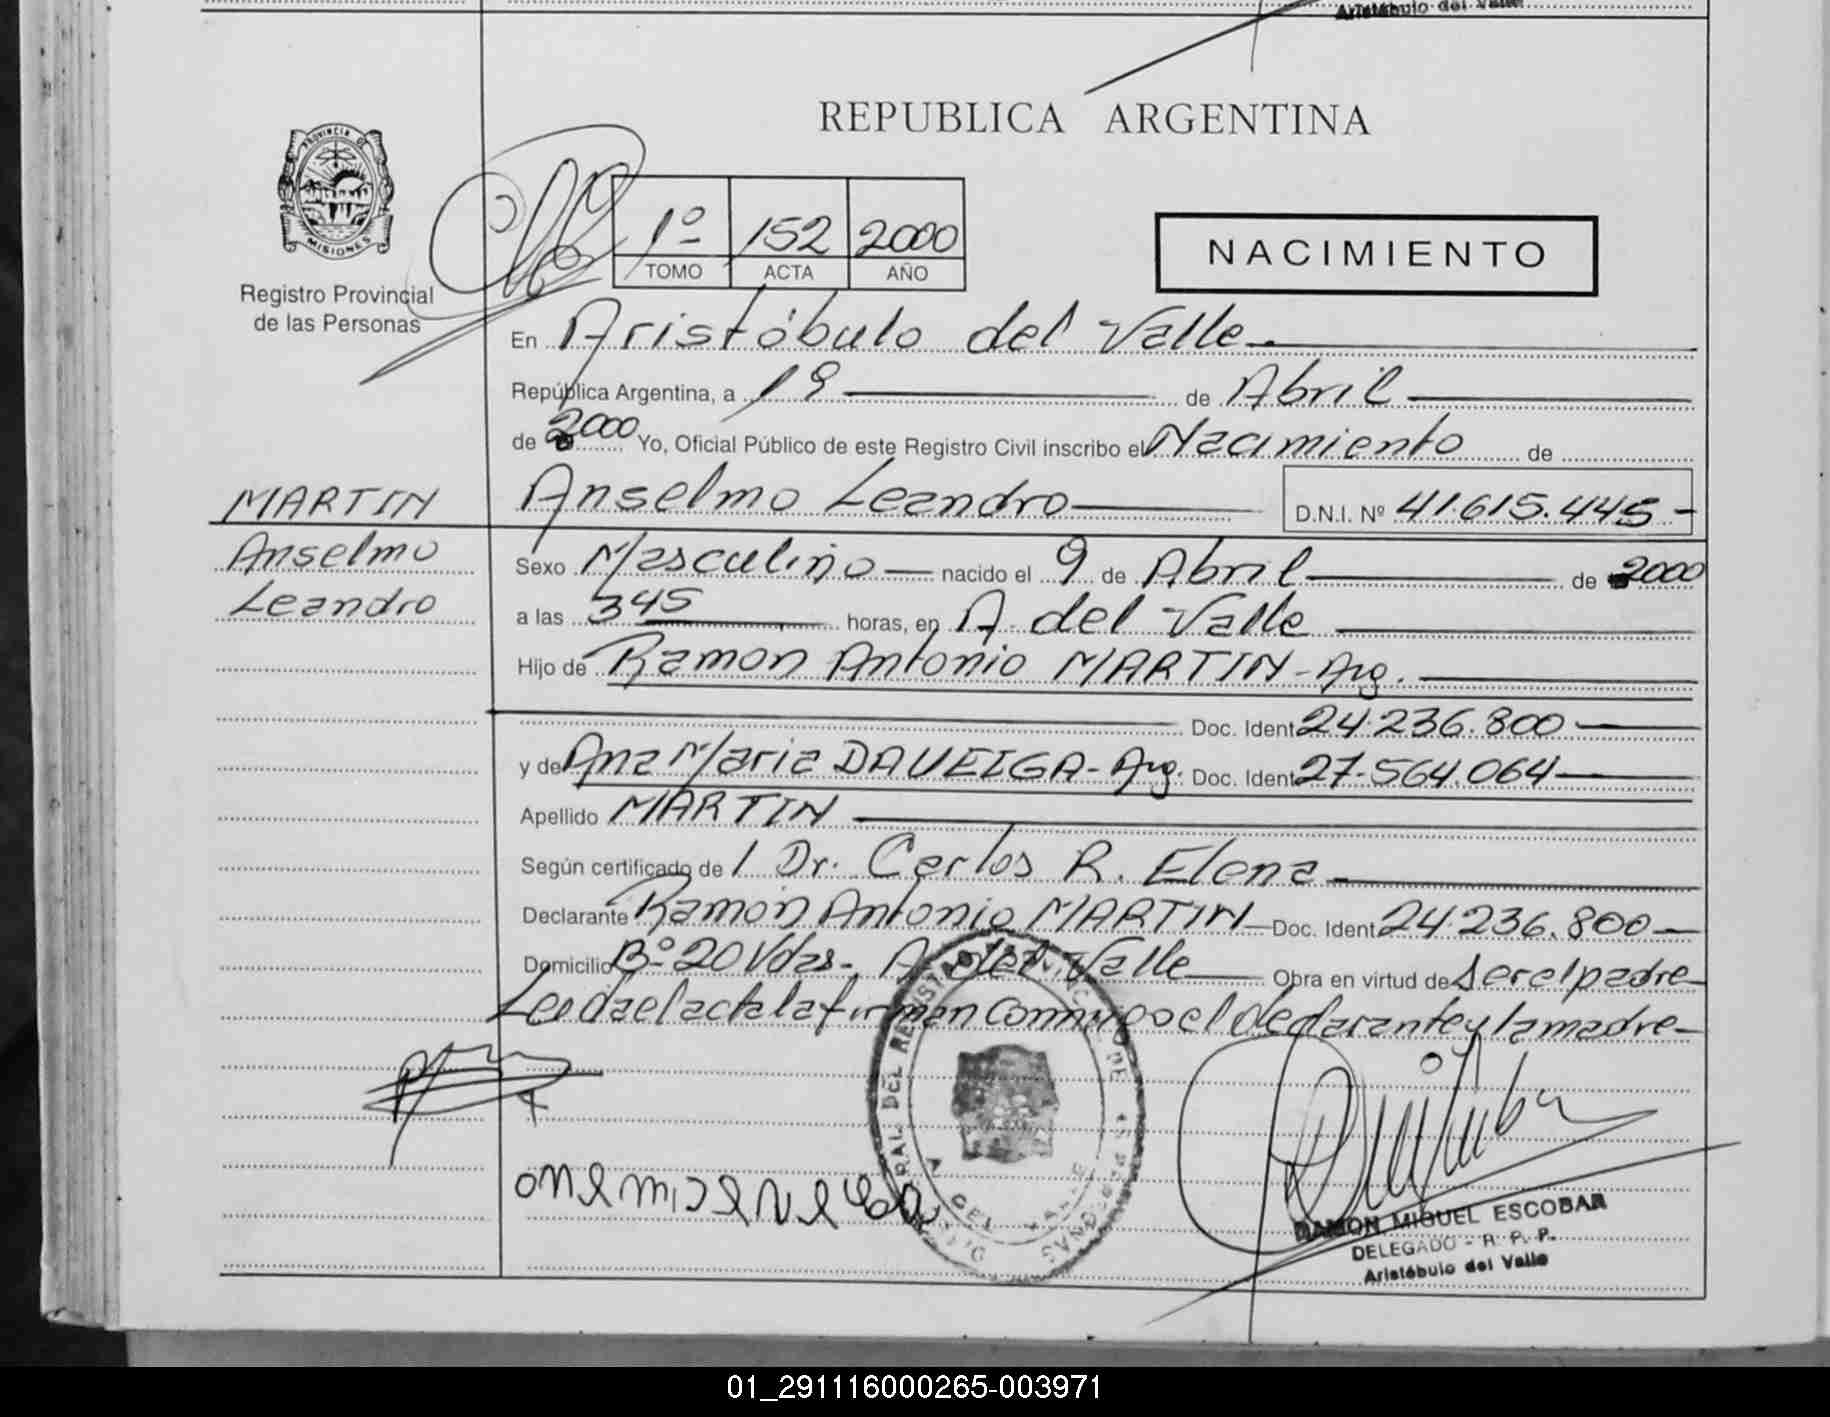 Aristóbulo del Valle
REPUBLICA ARGENTINA
PROVINCIA DE
MISIONES
Registro Provincial
de las Personas
1º 152 2000
TOMO ACTA AÑO
NACIMIENTO
En Aristóbulo del Valle.
República Argentina, a 19 de Abril
de 2000 Yo, Oficial Público de este Registro Civil inscribo el Nacimiento de
MARTIN Anselmo Leandro D.N.I. Nº 41.615.445.-
Anselmo Sexo Masculino nacido el 9 de Abril de 2000
Leandro a las 345 horas, en A. del Valle
Hijo de Ramon Antonio MARTIN - Arg.
Doc. Ident 24.236.800
y de Ana Maria DAVEIGA - Arg. Doc. Ident 27.564.064
Apellido MARTIN
Según certificado de / Dr. Carlos R. Elena
Declarante Ramon Antonio MARTIN Doc. Ident 24.236.800
Domicilio Bº 20 Vdas. A. del Valle Obra en virtud de ser el padre
Leida el acta la firman conmigo el declarante y la madre
RAMON MIGUEL ESCOBAR
DELEGADO - R. P. P.
Aristóbulo del Valle
01_291116000265-003971